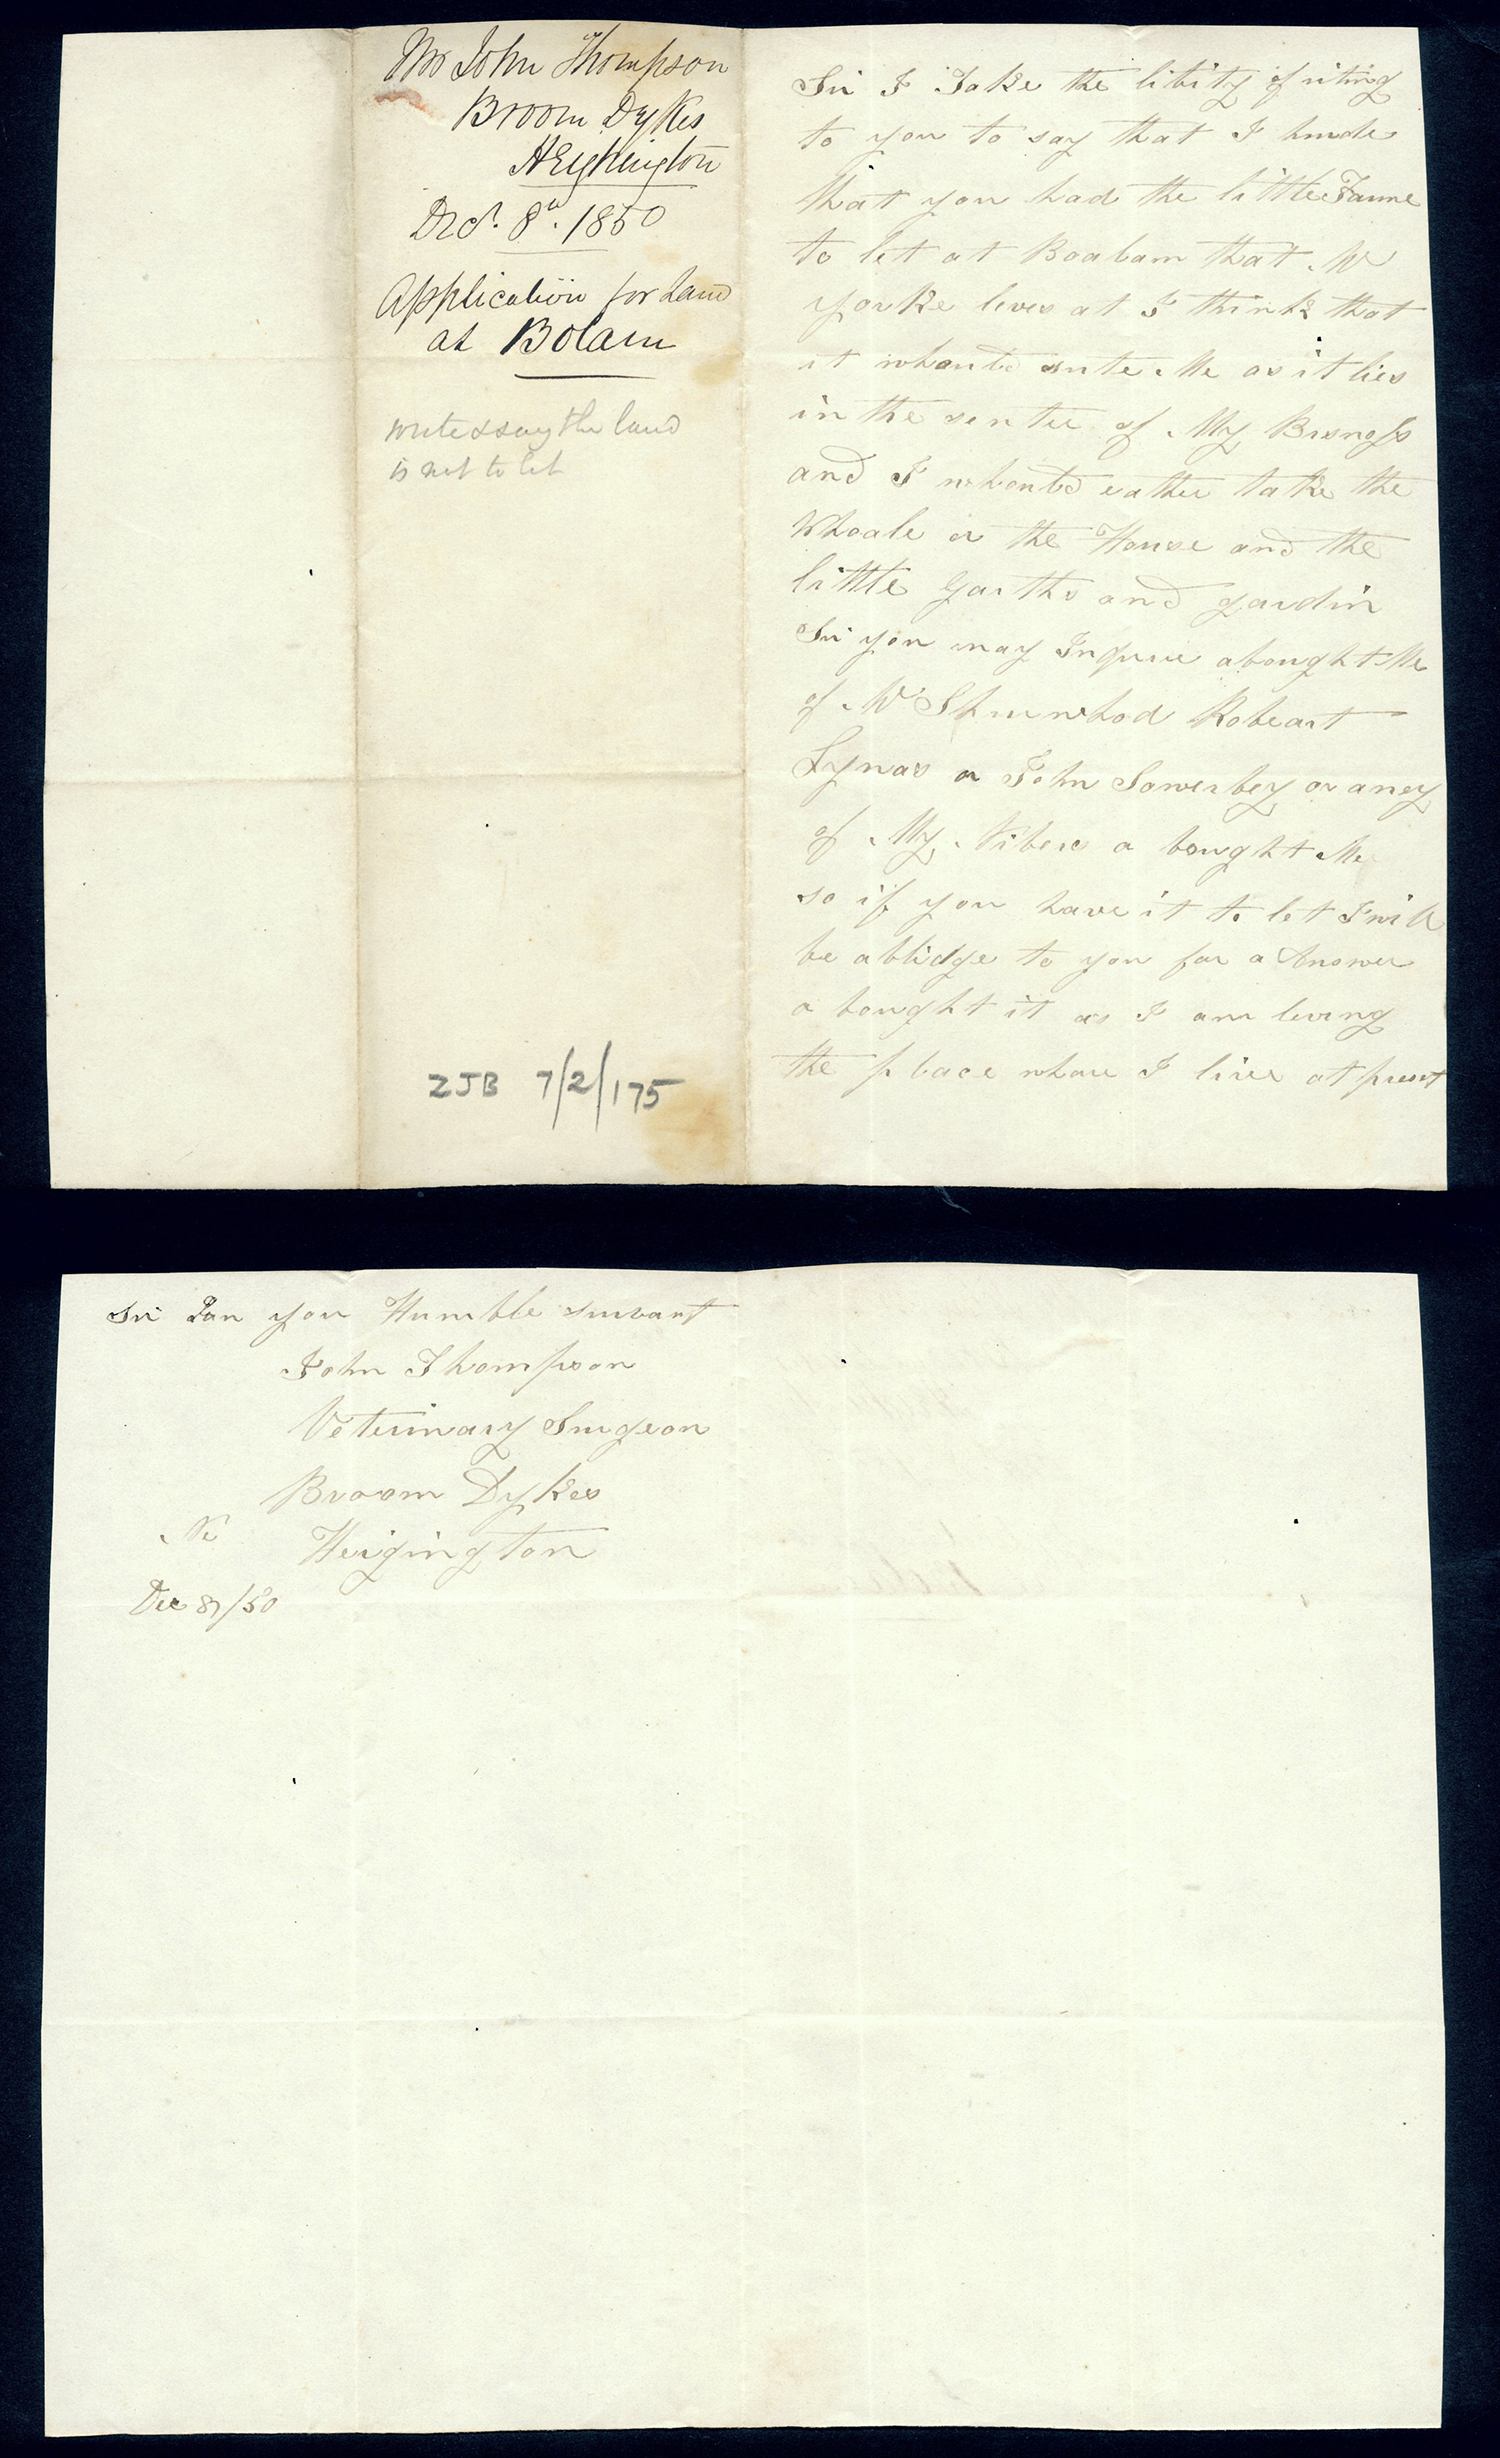 Mr John Thompson
Broom Dykes
HEighington
Decr. 8th. 1850
Application for Land
at Bolam
write & say the land
is not to let
ZJB 7/2/175
Sir I Take the libity of riting
to you to say that I hurde
that you had the little Farme
to let at Boalam that Mr
yorke lives at I think that
it whould sute Me as it lies
in the senter of My Bisness
and I whould eather take the
Whoale or the House and the
little garths and gardin
Sir you may Inquire abought Me
of Mr Shurwhod Robeart
Lynas or John Sowerbey or aney
of My Nibers a bought Me
so if you have it to let I will
be a blidge to you for a Answer
a bought it as I am leving
the place whare I live at presnt
Sir I am you Humble survant
John Thompson
Veterinary Surgeon
Broom Dykes
Nr Heigington
Dec 8/50